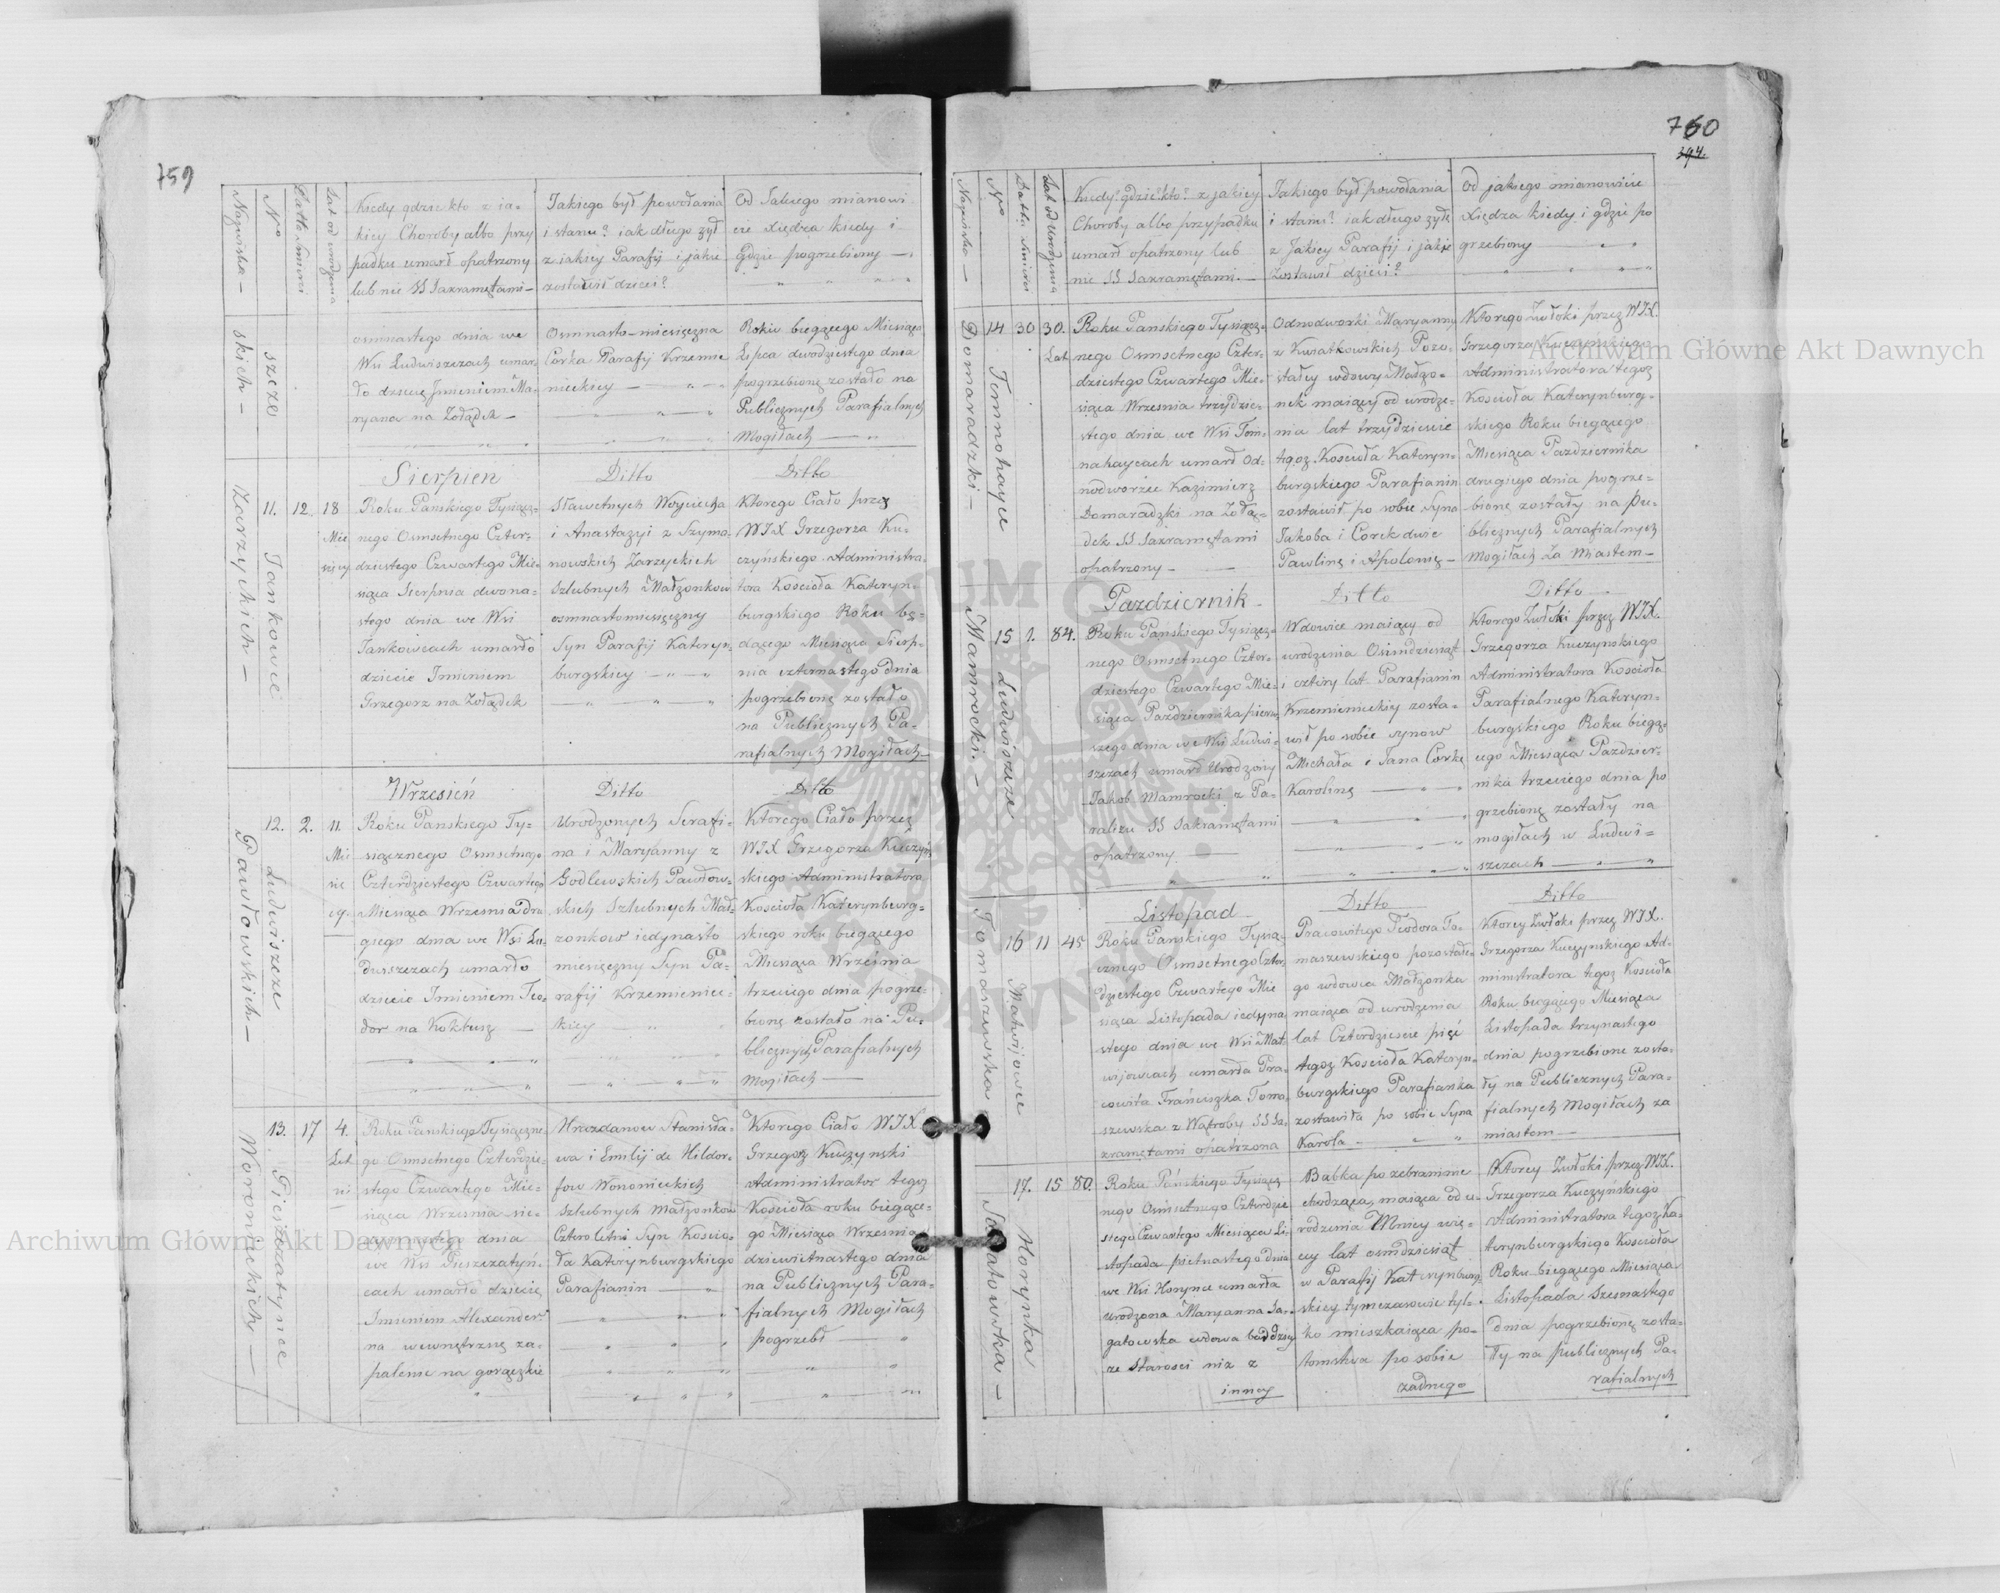 759
Nazwiska —
Nro
Datta Smierci
Lat od urodzenia
Kiedy gdzie kto z ja-
kiey Choroby albo przy
padku umarł opatrzony
lub nie SS Sakramętami —
Jakiego był powołania
i stanu? jak długo żył
z jakiey Parafij i jakie
zostawił dzieci?
Od Jakiego mianowi
cie Xiędza kiedy i
Gdzie pogrzebiony —
skich —
szcze
osmnastego dnia we
Wsi Ludwiszczach umar-
ło dziecię Jmieniem Ma-
ryana na Żołądek —
Osmnasto-miesięczna
Corka Parafij Krzemie
nieckiey —
Roku biegącego Miesiąca
Lipca dwódziestego dnia
pogrzebionę zostało na
Publicznych Parafialnych
Mogiłach —
Zarzyckich —
11.
Jankowce
12
18
Mie
sięcy
Sierpien
Roku Pańskiego Tysiącz-
nego Osmsetnego Czter-
dziestego Czwartego Mie-
siąca Sierpnia dwona-
stego dnia we Wsi
Jankowcach umarło
dziecie Jmieniem
Grzegorz na Żołądek
Ditto
Sławetnych Woyciecha
i Anastazyi z Szyma
nowskich Zarzyckich
Szlubnych Małżonkow
osmnastomiesięczny
Syn Parafij Kateryn-
burgskiey —
Ditto
Ktorego Ciało przez
WJX Grzegorza Ku-
czyńskiego Administra
tora Kościoła Kateryn-
burgskiego Roku bę-
dącego Miesiąca Sierp-
nia czternastego dnia
pogrzebionę zostało
na Publicznych Pa-
rafialnych Mogiłach —
Pawłowskich —
12.
Ludwiszcze
2.
11.
Mie
się
cy
Wrzesień
Roku Panskiego Ty-
siącznego Osmsetnego
Czterdziestego Czwartego
Miesiąca Września dru
giego dnia we Wsi Lu-
dwiszczach umarło
dziecie Jmieniem Teo-
dor na Koklusz —
Ditto
Urodzonych Serafi-
na i Maryanny z
Godlewskich Pawłow-
skich Szlubnych Mał-
zonkow iedynasto
miesięczny Syn Pa-
rafij Krzemieniec-
kiey
Ditto
Ktorego Ciało przez
WJX Grzegorza Kuczyń
skiego Administratora
Kościoła Katerynburg-
skiego roku biegącego
Miesiąca Września
trzeciego dnia pogrze-
bionę zostało na Pu-
blicznych Parafialnych
Mogiłach —
Woronieckich —
13.
Pieszczatynce
17
4.
Let
ni
Roku Pańskiego Tysiączne
go Osmsetnego Czterdzie-
stego Czwartego Mie-
siąca Wrzesnia sie-
demnastego dnia
we Wsi Pieszczatyń-
cach umarło dziecię
Jmieniem Alexander
na wewnętrzne za-
palenie na gorączkie
Hrazdanow Stanisła-
wa i Emilij de Hildor-
fow Woronieckich
Szlubnych Małżonkow
Cztero letni Syn Koscio-
ła Katerynburgskiego
Parafianin —
Ktorego Ciało WJX
Grzegorz Kuczynski
Administrator tegoz
Kościoła roku biegące-
go Miesiąca Wrzesnia
dziewietnastego dnia
na Publicznych Para-
fialnych Mogiłach
pogrzebł —
760
394.
Nazwisko —
Nro
Datta Smierci
Lat od Urodzenia
Kiedy? gdzie? kto? z jakiey
Choroby albo przypadku
umarł opatrzony lub
nie SS Sakramętami. —
Jakiego był powołania
i stanu? iak długo żył
z Jakiey Parafij i jakie
Zostawił dzieci?
Od jakiego mianowicie
Xiędza kiedy i gdzie po
grzebiony —
Domaradzki —
14
Tomnohayce
30
30.
Lat
Roku Pańskiego Tysiącz-
nego Osmsetnego Czter-
dziestego Czwartego Mie-
siąca Wrzesnia trzydzie-
stego dnia we Wsi Tom-
nahaycach umarł Od-
nodworzec Kazimierz
Domaradzki na Żołą-
dek SS Sakramętami
opatrzony —
Odnodworki Maryanny
z Kwiatkowskich Pozo-
stałey wdowy Małżo-
nek maiący od urodze-
nia lat trzydzieście
tegoz Kościoła Kateryn-
burgskiego Parafianin
zostawił po sobie Syna
Jakoba i Corek dwie
Pawlinę i Apolonię —
Ktorego Zwłoki przez WJX.
Grzegorza Kuczyńskiego
Administratora tegoz
Kościoła Katerynburg-
skiego Roku biegącego
Miesiąca Pazdziernika
drugiego dnia pogrze-
bione zostały na Pu-
blicznych Parafialnych
Mogiłach za Miastem —
Mamrocki. —
15
Ludwiszcze
1.
84.
Pazdziernik
Roku Pańskiego Tysiącz-
nego Osmsetnego Czter-
dziestego Czwartego Mie-
siąca Pazdziernika pierw
szego dnia we Wsi Ludwi-
szczach umarł Urodzony
Jakob Mamrocki z Pa-
raliżu SS Sakramętami
opatrzony —
Ditto
Wdowiec maiący od
urodzenia Osimdziesiąt
i cztery lat Parafianin
Krzemienieckiey zosta-
wił po sobie synow
Michała i Jana Corkę
Karolinę —
Ditto
Ktorego Zwłoki przez WJX.
Grzegorza Kuczynskiego
Administratora Kościoła
Parafialnego Kateryn-
burgskiego Roku biegą-
cego Miesiąca Pazdzier-
nika trzeciego dnia po
grzebionę zostały na
mogiłach w Ludwi=
szczach —
Tomaszewska
16
Matwijowce
11
45
Listopad
Roku Pańskiego Tysią-
cznego Osmsetnego Czter-
dziestego Czwartego Mie
siąca Listopada iedyna
stego dnia we Wsi Mat
wijowcach umarła Pra-
cowita Franciszka Toma
szewska z Wątroby SS Sa-
kramętami opatrzona
Ditto
Pracowitego Teodora To-
maszewskiego pozostałe-
go wdowca Małżonka
maiąca od urodzenia
lat Czterdzieście pięć
tegoz Kościoła Kateryn-
burgskiego Parafianka
zostawiła po sobie Syna
Karola —
Ditto
Ktorey Zwłoki przez WJX.
Grzegorza Kuczynskiego Ad-
ministratora tegoz Kościoła
Roku biegącego Miesiąca
Listopada trzynastego
dnia pogrzebione zosta-
ły na Publicznych Para-
fialnych Mogiłach za
miastem —
17.
Horynka
15
80.
Roku Pańskiego Tysiącz
nego Osmsetnego Czterdzie
stego Czwartego Miesiąca Li-
stopada pietnastego dnia
we Wsi Horynce umarła
Urodzona Maryanna Sa-
gatowska wdowa bardziey
ze Starosci niz z
inney
Babka po zebraninie
chodząca, maiąca od u-
rodzenia Mniey wię-
cey lat osmdziesiąt
w Parafij Katerynburg-
skiey tymczasowie tyl-
ko mieszkaiąca po-
tomstwa po sobie
żadnego
Ktorey Zwłoki przez WJX.
Grzegorza Kuczyńskiego
Administratora tegoz Ka-
terynburgskiego Kościoła
Roku biegącego Miesiąca
Listopada Szesnastego
dnia pogrzebionę zosta-
ły na publicznych Pa-
rafialnych
Archiwum Główne Akt Dawnych
Archiwum Główne Akt Dawnych
ARCHIWUM GŁÓWNE AKT DAWNYCH